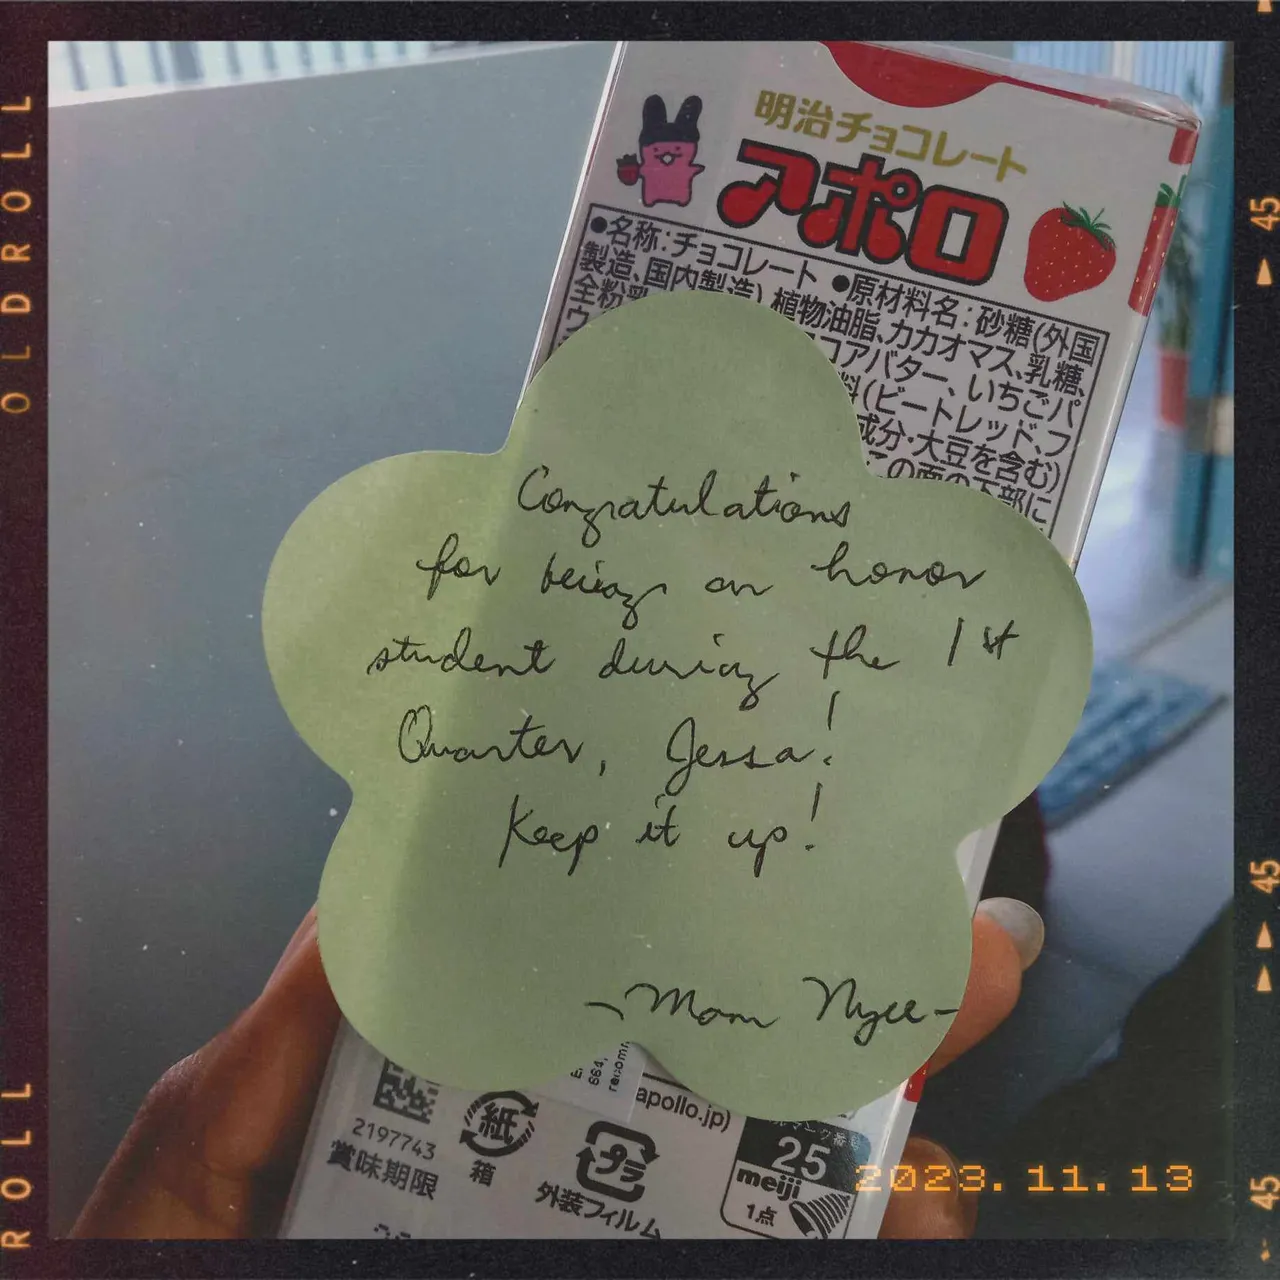 明治チョコレート
アポロ
●名称:チョコレート ●原材料名:砂糖(外国
製造、国内製造)、植物油脂、カカオマス、乳糖、
全粉乳
ココアバター、いちごパ
料(ビートレッド、フ
成分・大豆を含む)
この面の下部に
Congratulations
for being an honor
student during the 1st
Quarter, Jessa!
Keep it up!
-Mam Nyee-
apollo.jp)
2197743
賞味期限
紙
箱
プラ
外装フィルム
25
meiji
1点
2023.11.13
OLDROLL
ROLL
45
45
45